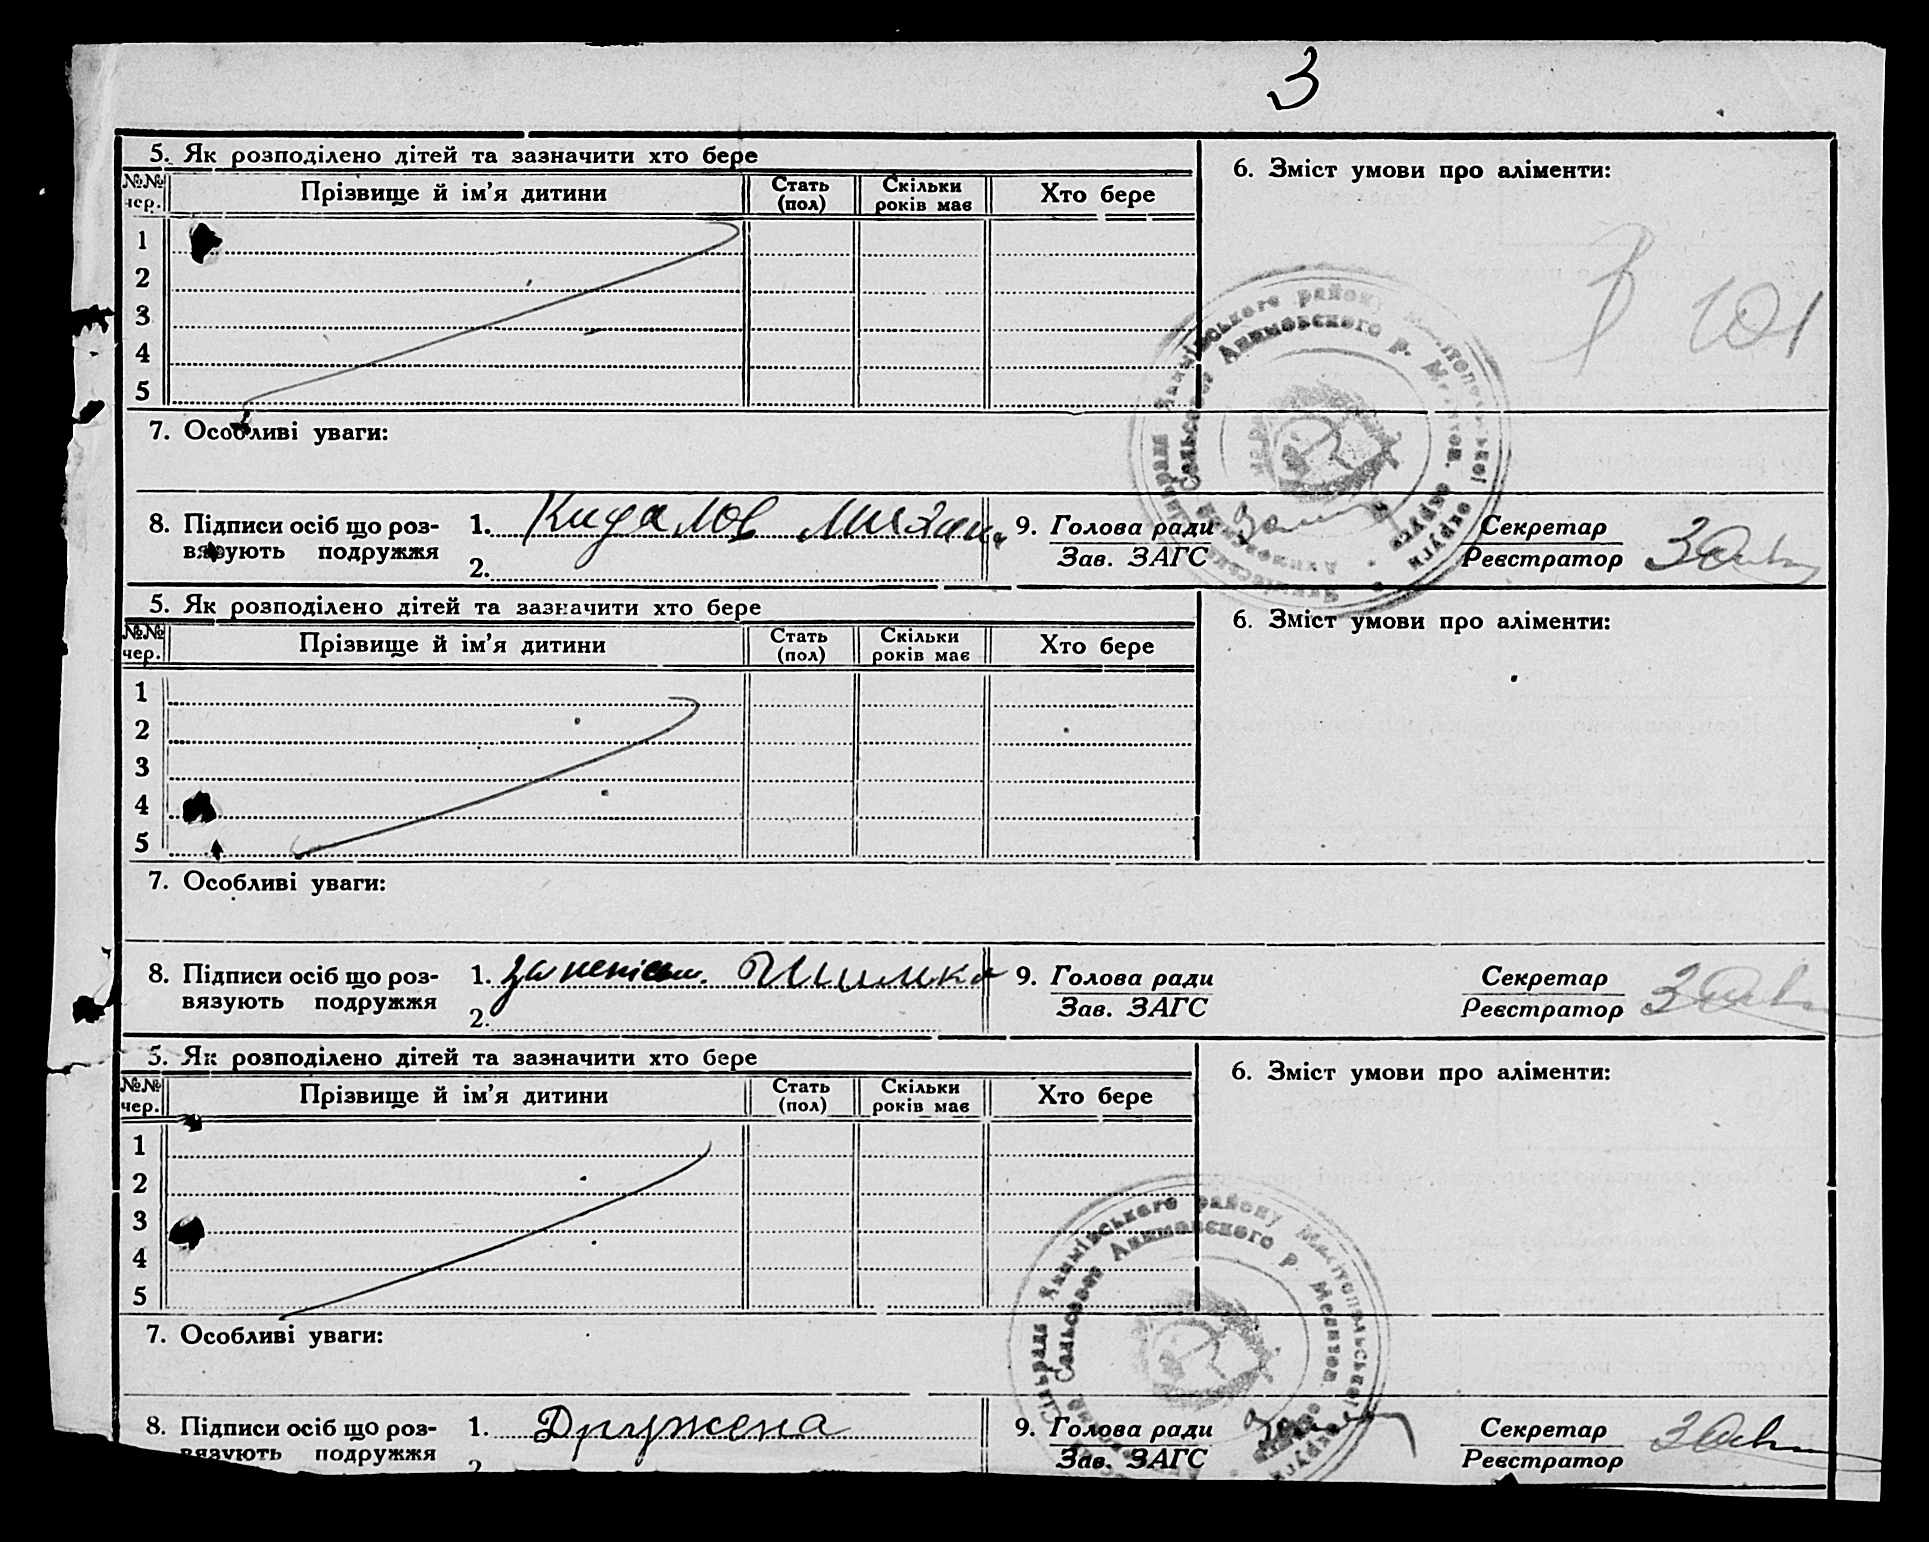 3
5. Як розподілено дітей та зазначити хто бере
6. Зміст умови про аліменти:
№№ чер. Прізвище й ім’я дитини Стать (пол) Скільки років має Хто бере
1
2
3
4
5
7. Особливі уваги:
8. Підписи осіб що роз-
вязують подружжя
1. Кидалов Михаил
2.
9. Голова ради
Зав. ЗАГС
Секретар
Реєстратор
5. Як розподілено дітей та зазначити хто бере
6. Зміст умови про аліменти:
№№ чер. Прізвище й ім’я дитини Стать (пол) Скільки років має Хто бере
1
2
3
4
5
7. Особливі уваги:
8. Підписи осіб що роз-
вязують подружжя
1.
2.
9. Голова ради
Зав. ЗАГС
Секретар
Реєстратор
5. Як розподілено дітей та зазначити хто бере
6. Зміст умови про аліменти:
№№ чер. Прізвище й ім’я дитини Стать (пол) Скільки років має Хто бере
1
2
3
4
5
7. Особливі уваги:
8. Підписи осіб що роз-
вязують подружжя
1. Дружена
2
9. Голова ради
Зав. ЗАГС
Секретар
Реєстратор